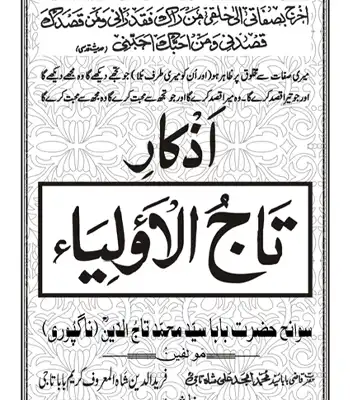 اخرج بصفاتی الی خلقی من راٰک فقد راٰنی ومن قصدک
قصدنی ومن احبک احبنی (حدیث قدسی)
میری صفات سے مخلوق پر ظاہر ہو (اور اُن کو میری طرف بلا) جو تجھے دیکھے گا وہ مجھے دیکھے گا
اور جو تیرا قصد کرے گا۔ وہ میرا قصد کرے گا اور جو تجھ سے محبت کرے گا وہ مجھ سے محبت کرے گا
اَذکارِ
تَاجُ الْاَوْلِیَاء
سوانح حضرت بابا سید محمد تاج الدین (ناگپوری)
مولفین
مقرر قاضی بابا سید محمد امجد علی شاہ تاجی
فرید الدین شاہ المعروف کریم بابا تاجی